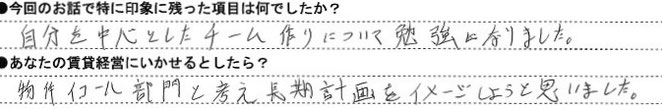 ●今回のお話で特に印象に残った項目は何でしたか？
自分を中心としたチーム作りについて勉強になりました。
●あなたの賃貸経営にいかせるとしたら？
物件イコール部門と考え長期計画をイメージしようと思いました。